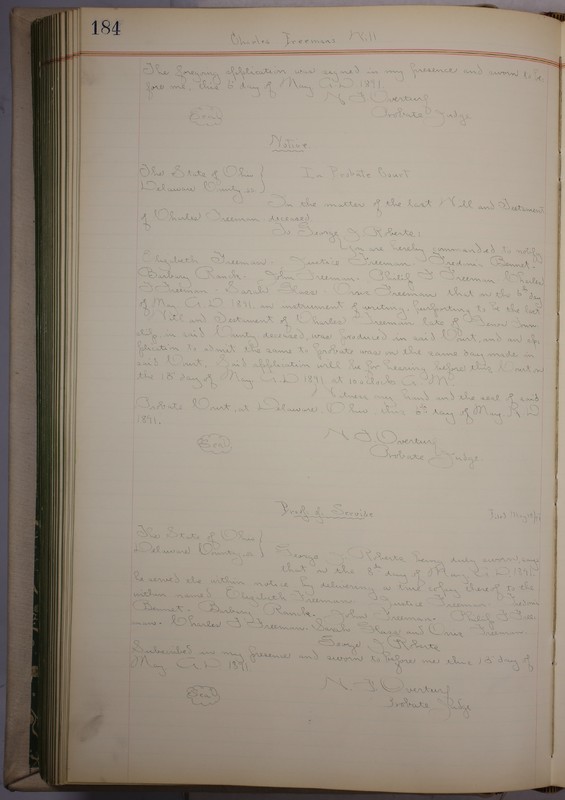 184
Charles Freemans Will
The foregoing application was signed in my presence and sworn to be
fore me, this 6 day of May A.D. 1891.
N. F. Overturf
Probate Judge
Seal
Notice
The State of Ohio
Delaware County ss
In Probate Court
In the matter of the last Will and Testament
of Charles Freeman deceased
To George J. Roberts:
You are hereby commanded to notify
Elizabeth Freeman. Justice Freeman. Bennet.
John Freeman. Philip F Freeman Charles
F Freeman Sarah Freeman that on the 6th day
of May A.D. 1891, an instrument of writing, purporting to be the last
Will and Testament of Charles Freeman late of Town
ship, in said County deceased, was produced in said Court, and an ap-
plication to admit the same to probate was on the same day made in
said Court. Said application will be for hearing before this Court on
the 18 day of May A.D. 1891 at 10 o'clock A.M.
Witness my hand and the seal of said
Probate Court, at Delaware, Ohio, this 6th day of May A.D.
1891.
Seal
N. F. Overturf
Probate Judge
Proof of Service
The State of Ohio
Delaware County ss
George J. Roberts being duly sworn, says
that on the 8th day of May A.D. 1891
he served the within notice by delivering a true copy thereof to the
within named Elizabeth Freeman. Justice Freeman.
Bennet. John Freeman. Philip F Free
man. Charles F Freeman. Sarah and Freeman.
George J. Roberts
Subscribed in my presence and sworn to before me this day of
May A.D. 1891
N. F. Overturf
Seal
Probate Judge